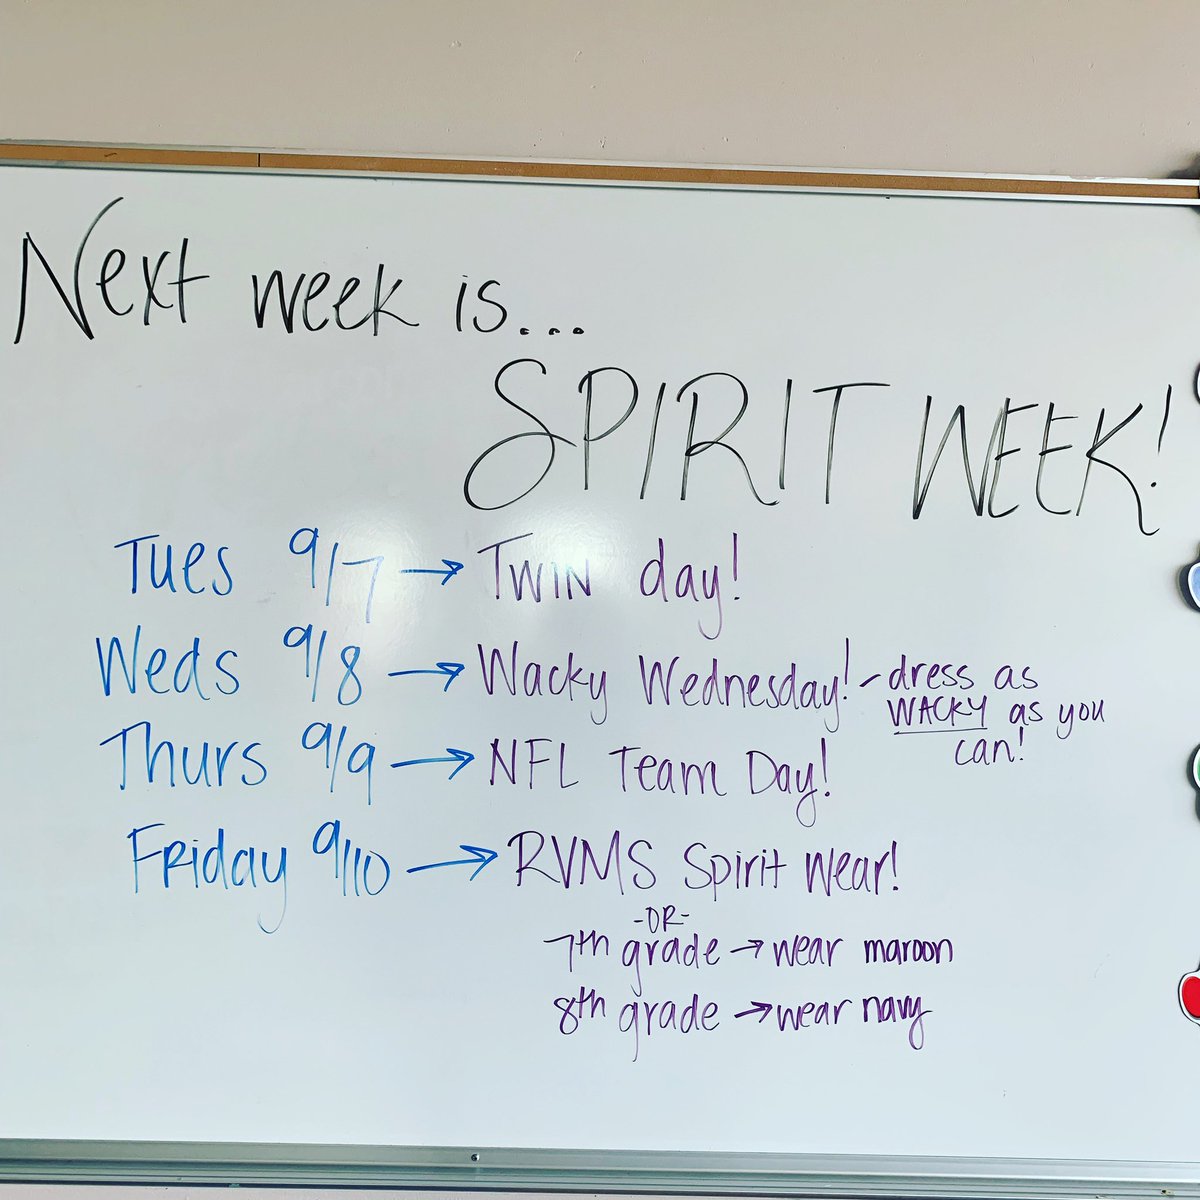 Next week is...
SPIRIT WEEK!
Tues 9/7 → TWIN day!
Weds 9/8 → Wacky Wednesday! - dress as
WACKY as you
can!
Thurs 9/9 → NFL Team Day!
Friday 9/10 → RVMS Spirit Wear!
-OR-
7th grade → wear maroon
8th grade → wear navy